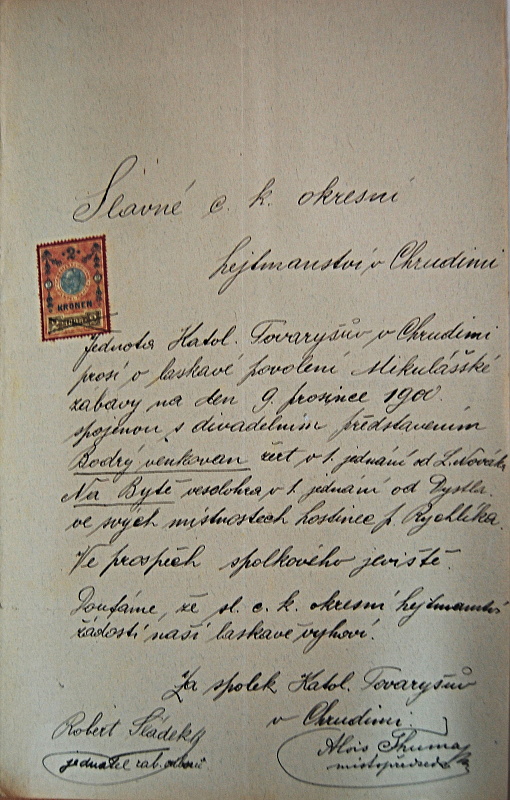 Slavné c. k. okresní
hejtmanství v Chrudimi
2
KRONEN
Jednota Katol. Tovaryšův v Chrudimi
prosí o laskavé povolení Mikulášské
zábavy na den 9. prosince 1900.
spojenou s divadelním představením
Bodrý venkovan žert v 1. jednání od L. Nováka
Na Bytě veselohra v 1. jednání od Dystla.
ve svých místnostech hostinec p. Rychlíka.
Ve prospěch spolkového jeviště.
Doufáme, že sl. c. k. okresní hejtmanství
žádosti naší laskavě vyhoví.
Za spolek Katol. Tovaryšův
v Chrudimi.
Robert Sládek
jednatel zab. odborů
Alois Thuma
místopředseda